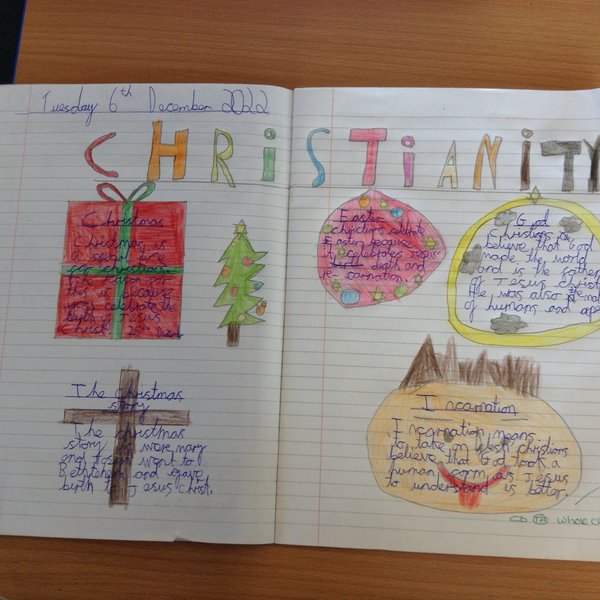 Tuesday 6th December 2022
CHRiSTiANiTY
Christmas
Christmas is
a special time
for christians
the reason for
that is because
we celebrate the
birth of Jesus
Christ 25th Dec
Easter
christians celebrate
Easter because
it celebrates Jesus
birth death and
re-carnation.
God
Christians
believe that God
made the world
and is the father
of Jesus christ
He was also the
of humans and
The Christmas
story
The christmas
story is were mary
and Joseph went to
Bethlehem and gave
birth to Jesus Christ.
Incarnation
Incarnation means
to take on flesh christions
believe that God took a
human form as Jesus
to understand us better.
CD TA whole cl